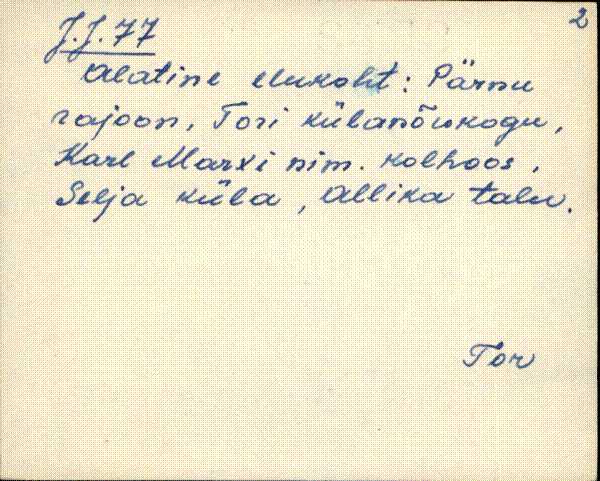 2
J.J. 77
Alatine elukoht: Pärnu
rajoon, Tori külanõukogu,
Karl Marxi nim. kolhoos,
Selja küla, Allika talu.
Tor